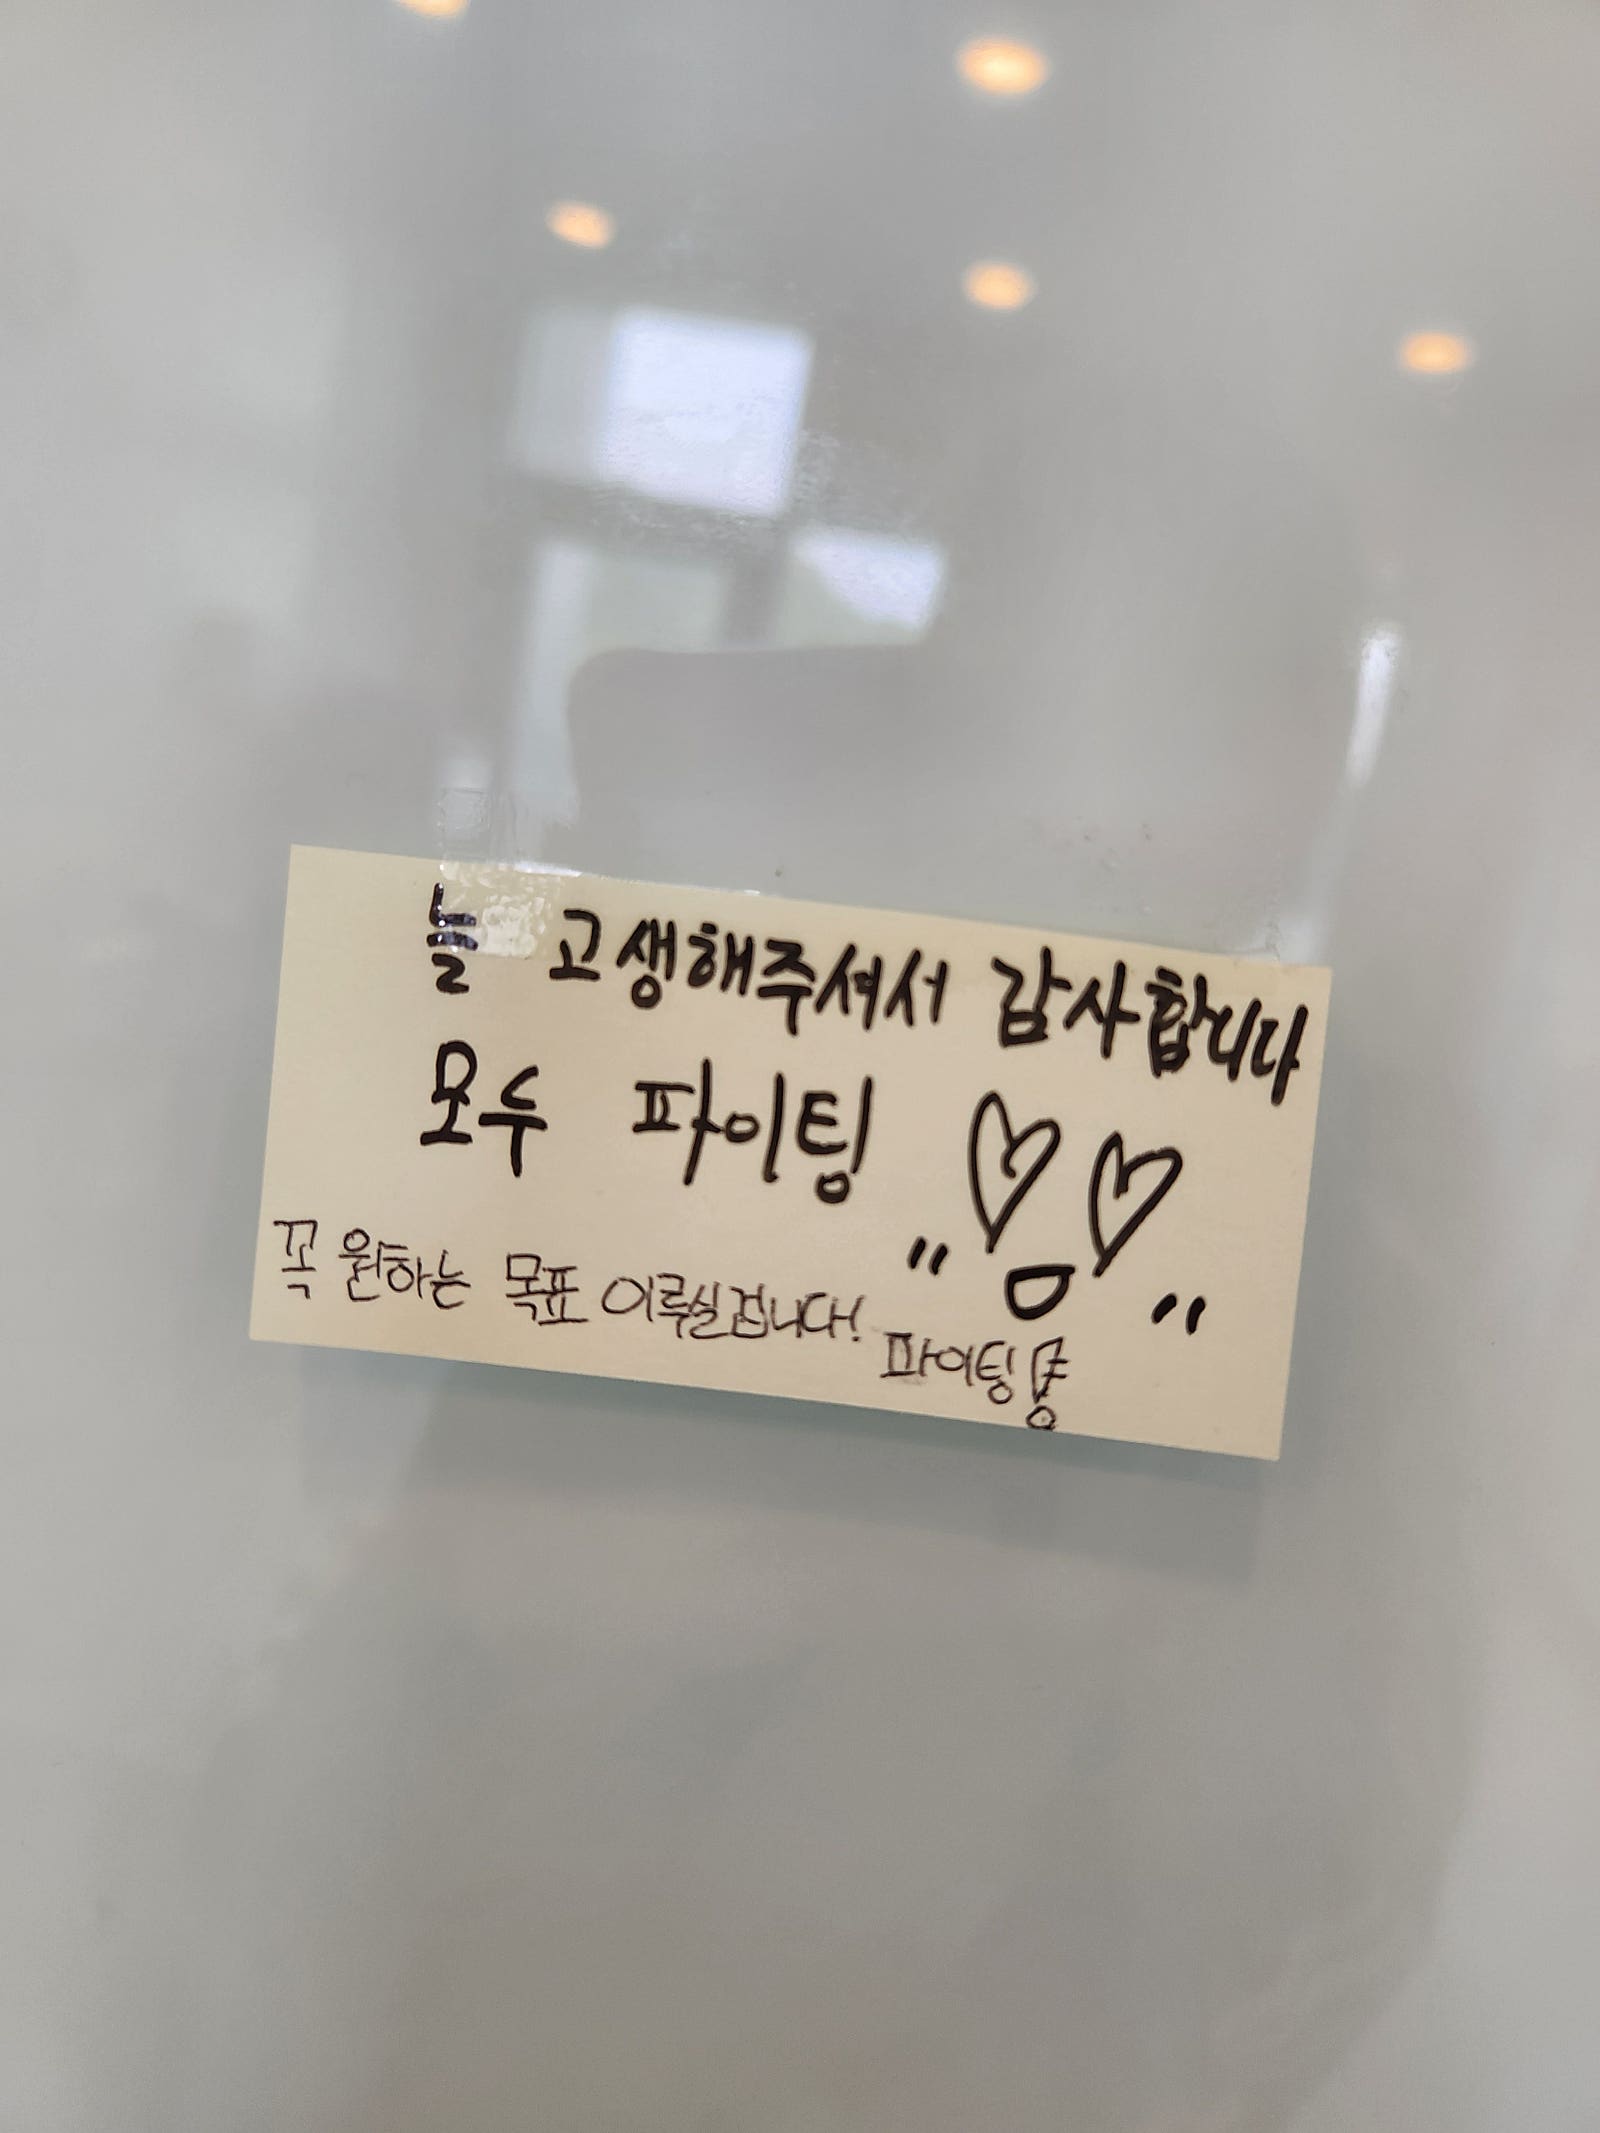 늘 고생해주셔서 감사합니다
모두 파이팅 ♡♡
꼭 원하는 목표 이루실겁니다!
파이팅